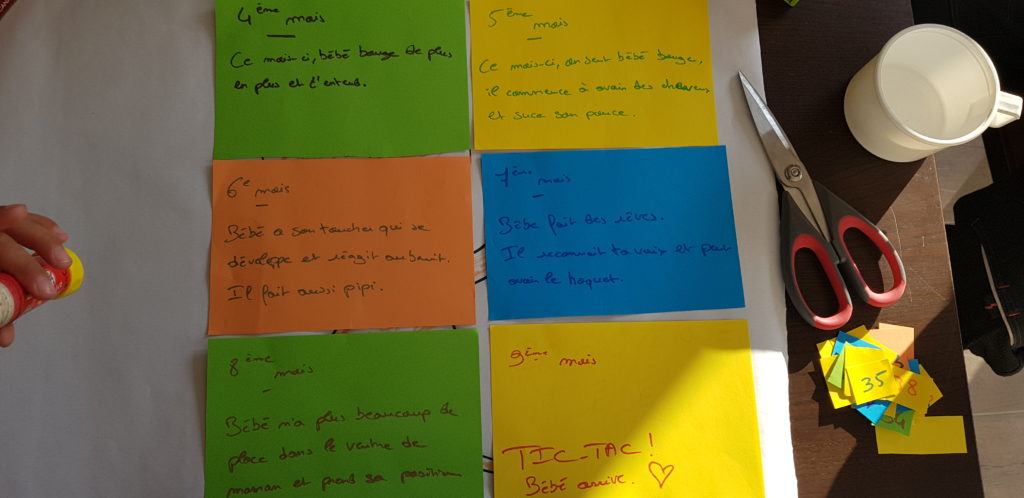 4ème mois
Ce mois-ci, bébé bouge de plus
en plus et t'entend.
5ème mois
Ce mois-ci, on sent bébé bouger,
il commence à avoir des cheveux
et suce son pouce.
6e mois
Bébé a son toucher qui se
développe et réagit au bruit.
Il fait aussi pipi.
7ème mois
Bébé fait des rêves.
Il reconnait ta voix et peut
avoir le hoquet.
8ème mois
Bébé n'a plus beaucoup de
place dans le ventre de
maman et prend sa position
9ème mois
TIC-TAC !
Bébé arrive.
35
38